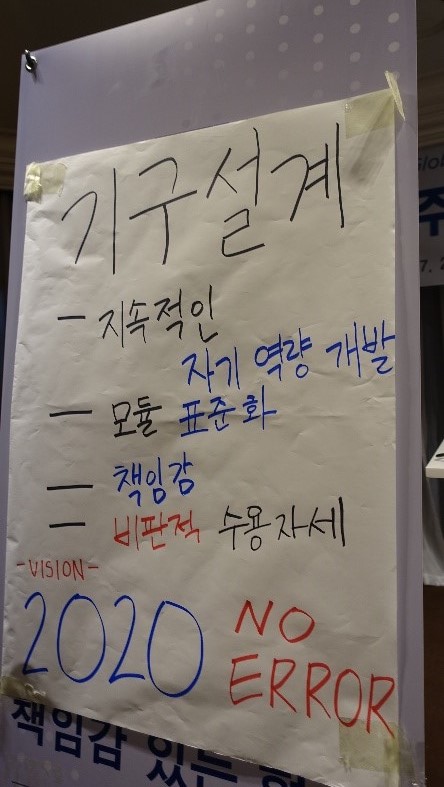 기구설계
- 지속적인
자기 역량 개발
- 모듈 표준화
- 책임감
- 비판적 수용자세
-VISION-
2020 NO
ERROR
Glob
주
7. 2
책임감 있는